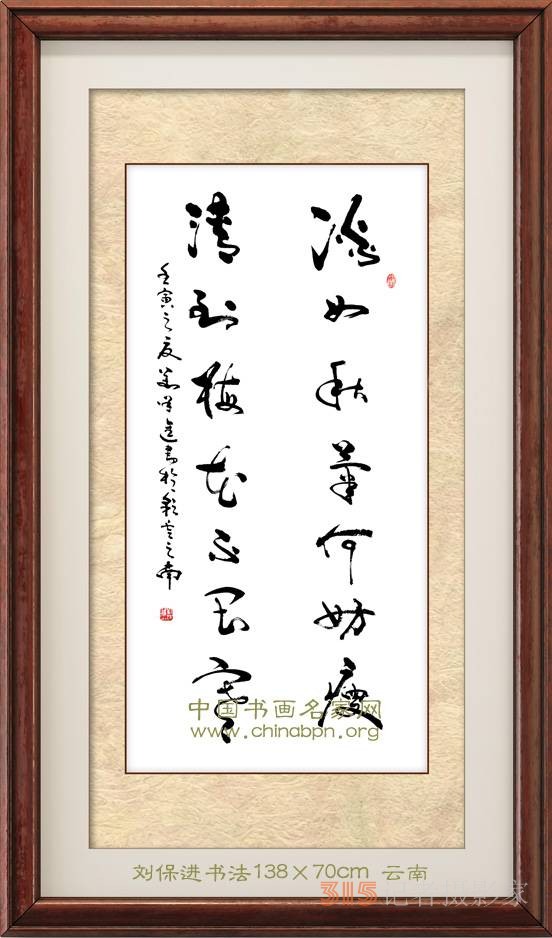 淡如秋菊何妨瘦
清到梅花不畏寒
壬寅之夏刘保进書於彩雲之南
中国书画名家网
www.chinabpn.org
刘保进书法138×70cm 云南
315记者摄影家